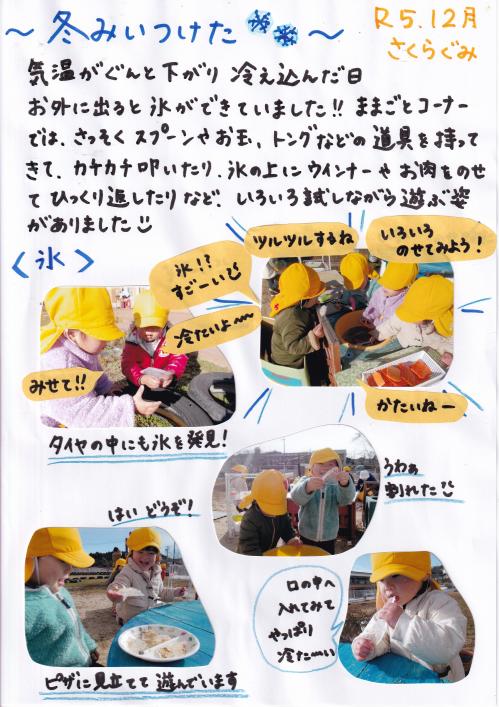 ～ 冬みいつけた ～
R5.12月
さくらぐみ
気温がぐんと下がり 冷え込んだ日
お外に出ると 氷ができていました!! ままごとコーナー
では、さっそく スプーンやお玉、トングなどの 道具を持って
きて、カチカチ叩いたり、氷の上にウインナーや お肉をのせ
て ひっくり返したりなど、いろいろ試しながら 遊ぶ姿
がありました
<氷>
氷!?
すごーい
ツルツルするね
いろいろ
のせてみよう!
冷たいよ～
みせて!!
かたいねー
タイヤの中にも氷を発見!
うわぁ
割れた
はい どうぞ!
口の中へ
入れてみて
やっぱり
冷た～い
ピザに見立てて 遊んでいます